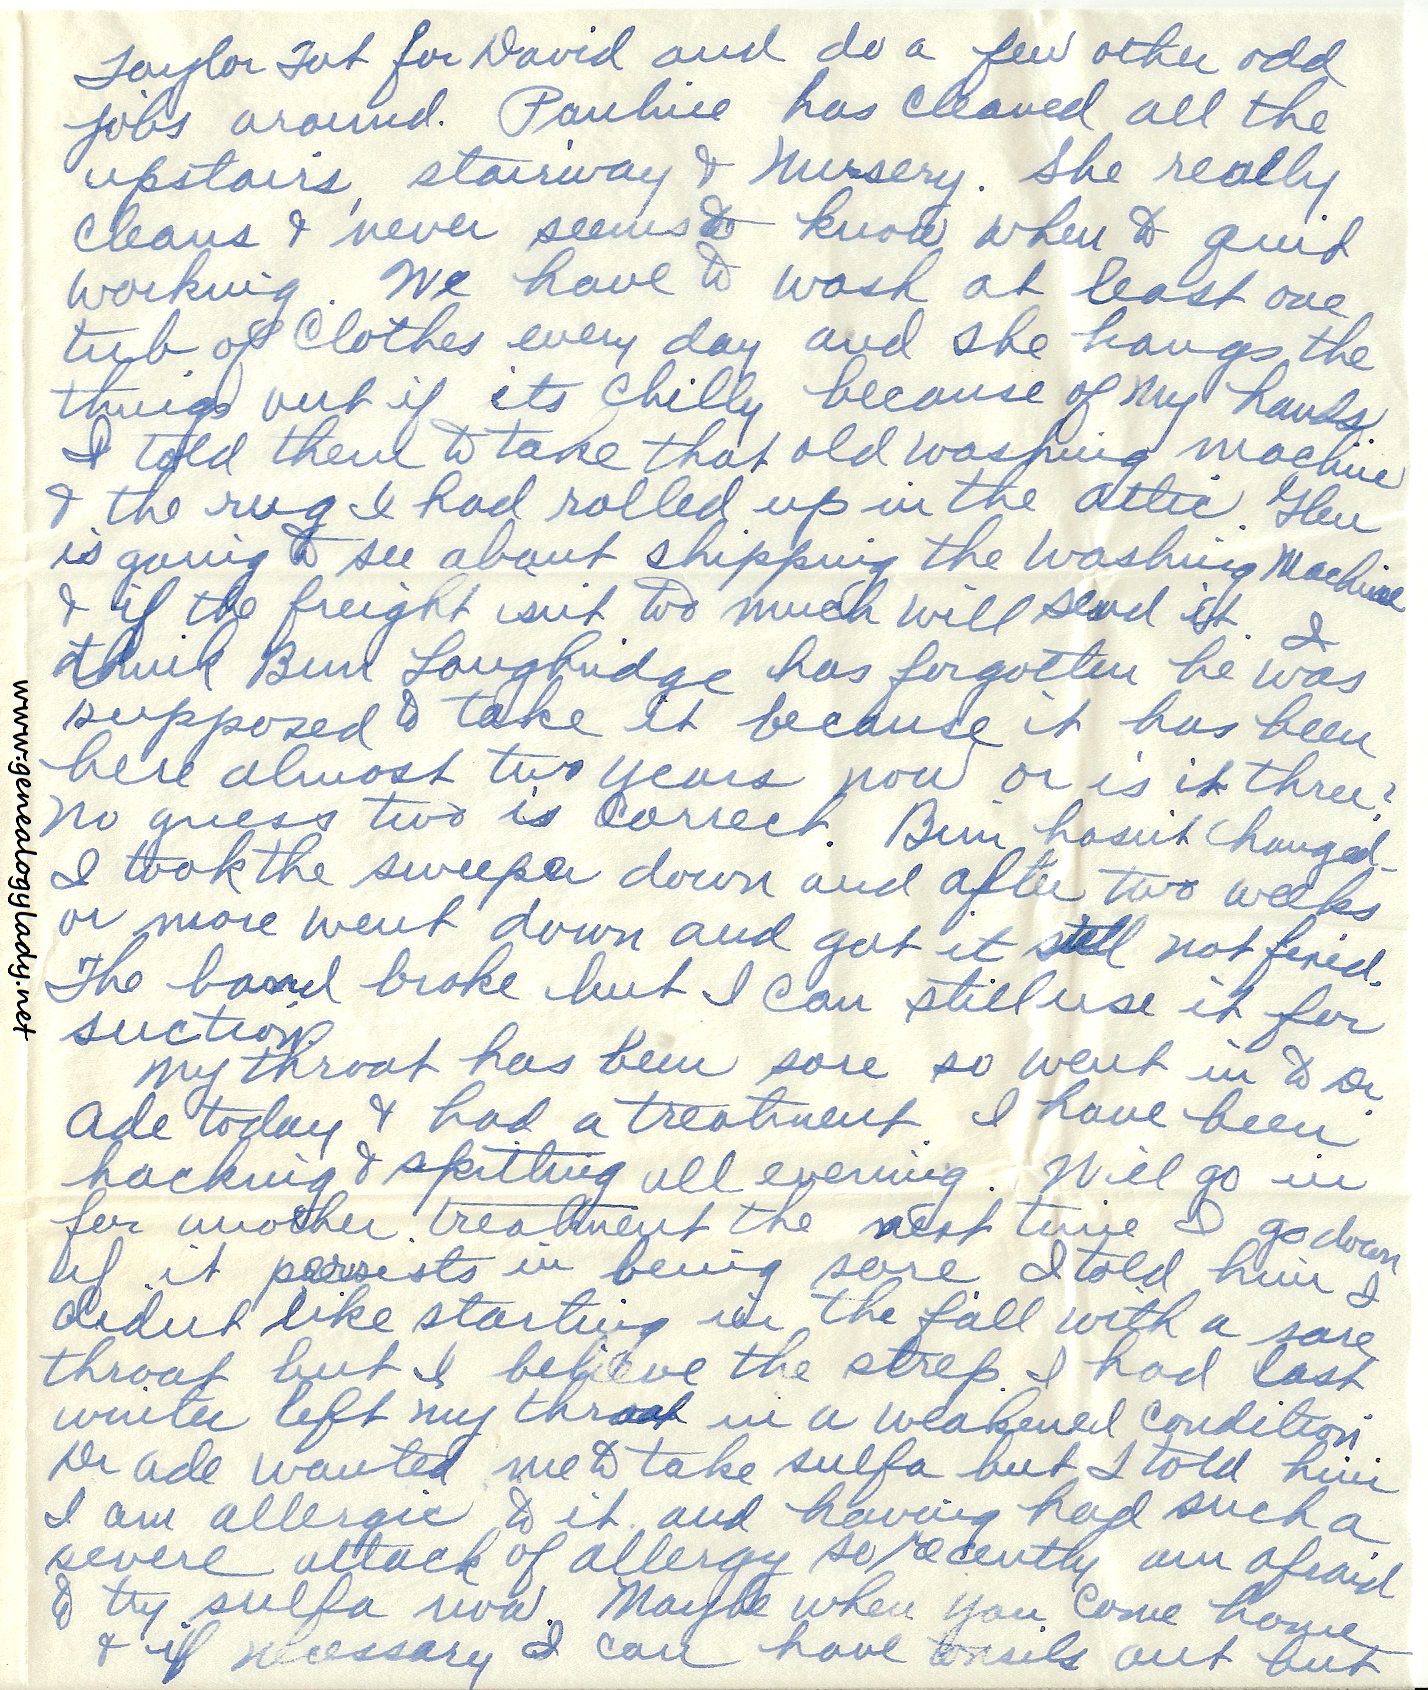 Taylor Tot for David and do a few other odd
jobs around. Pauline has cleaned all the
upstairs, stairway & Nursery. She really
cleans & never seems to know when to quit
working. We have to wash at least one
tub of clothes every day and she hangs the
things out if its chilly because of my hands
I told them to take that old washing machine
& the rug I had rolled up in the attic. Glen
is going to see about shipping the washing machine
& if the freight isnt too much will send it. I
think Bim Loughridge has forgotten he was
supposed to take it because it has been
here almost two years now or is it three?
No guess two is correct. Bim hasnt changed
I took the sweeper down and after two weeks
or more went down and got it still not fixed.
The band broke but I can still use it for
suction.
My throat has been sore so went in to Dr.
Ade today & had a treatment I have been
hacking & spitting all evening. Will go in
for another treatment the next time I go down
if it persists in being sore I told him I
didnt like starting in the fall with a sore
throat but I believe the strep I had last
winter left my throat in a weakened condition
Dr Ade wanted me to take sulfa but I told him
I am allergic to it and having had such a
severe attack of allergy so recently am afraid
to try sulfa now. Maybe when you come home
& if necessary I can have tonsils out but
www.genealogylady.net